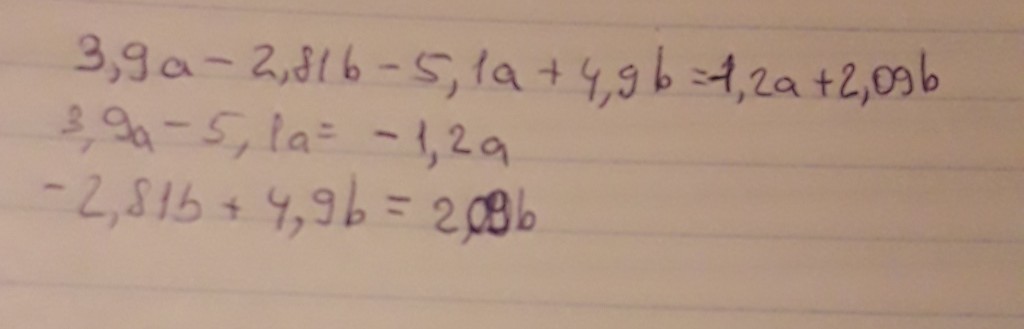 3,9a - 2,81b - 5,1a + 4,9b = -1,2a + 2,09b
3,9a - 5,1a = -1,2a
-2,81b + 4,9b = 2,09b